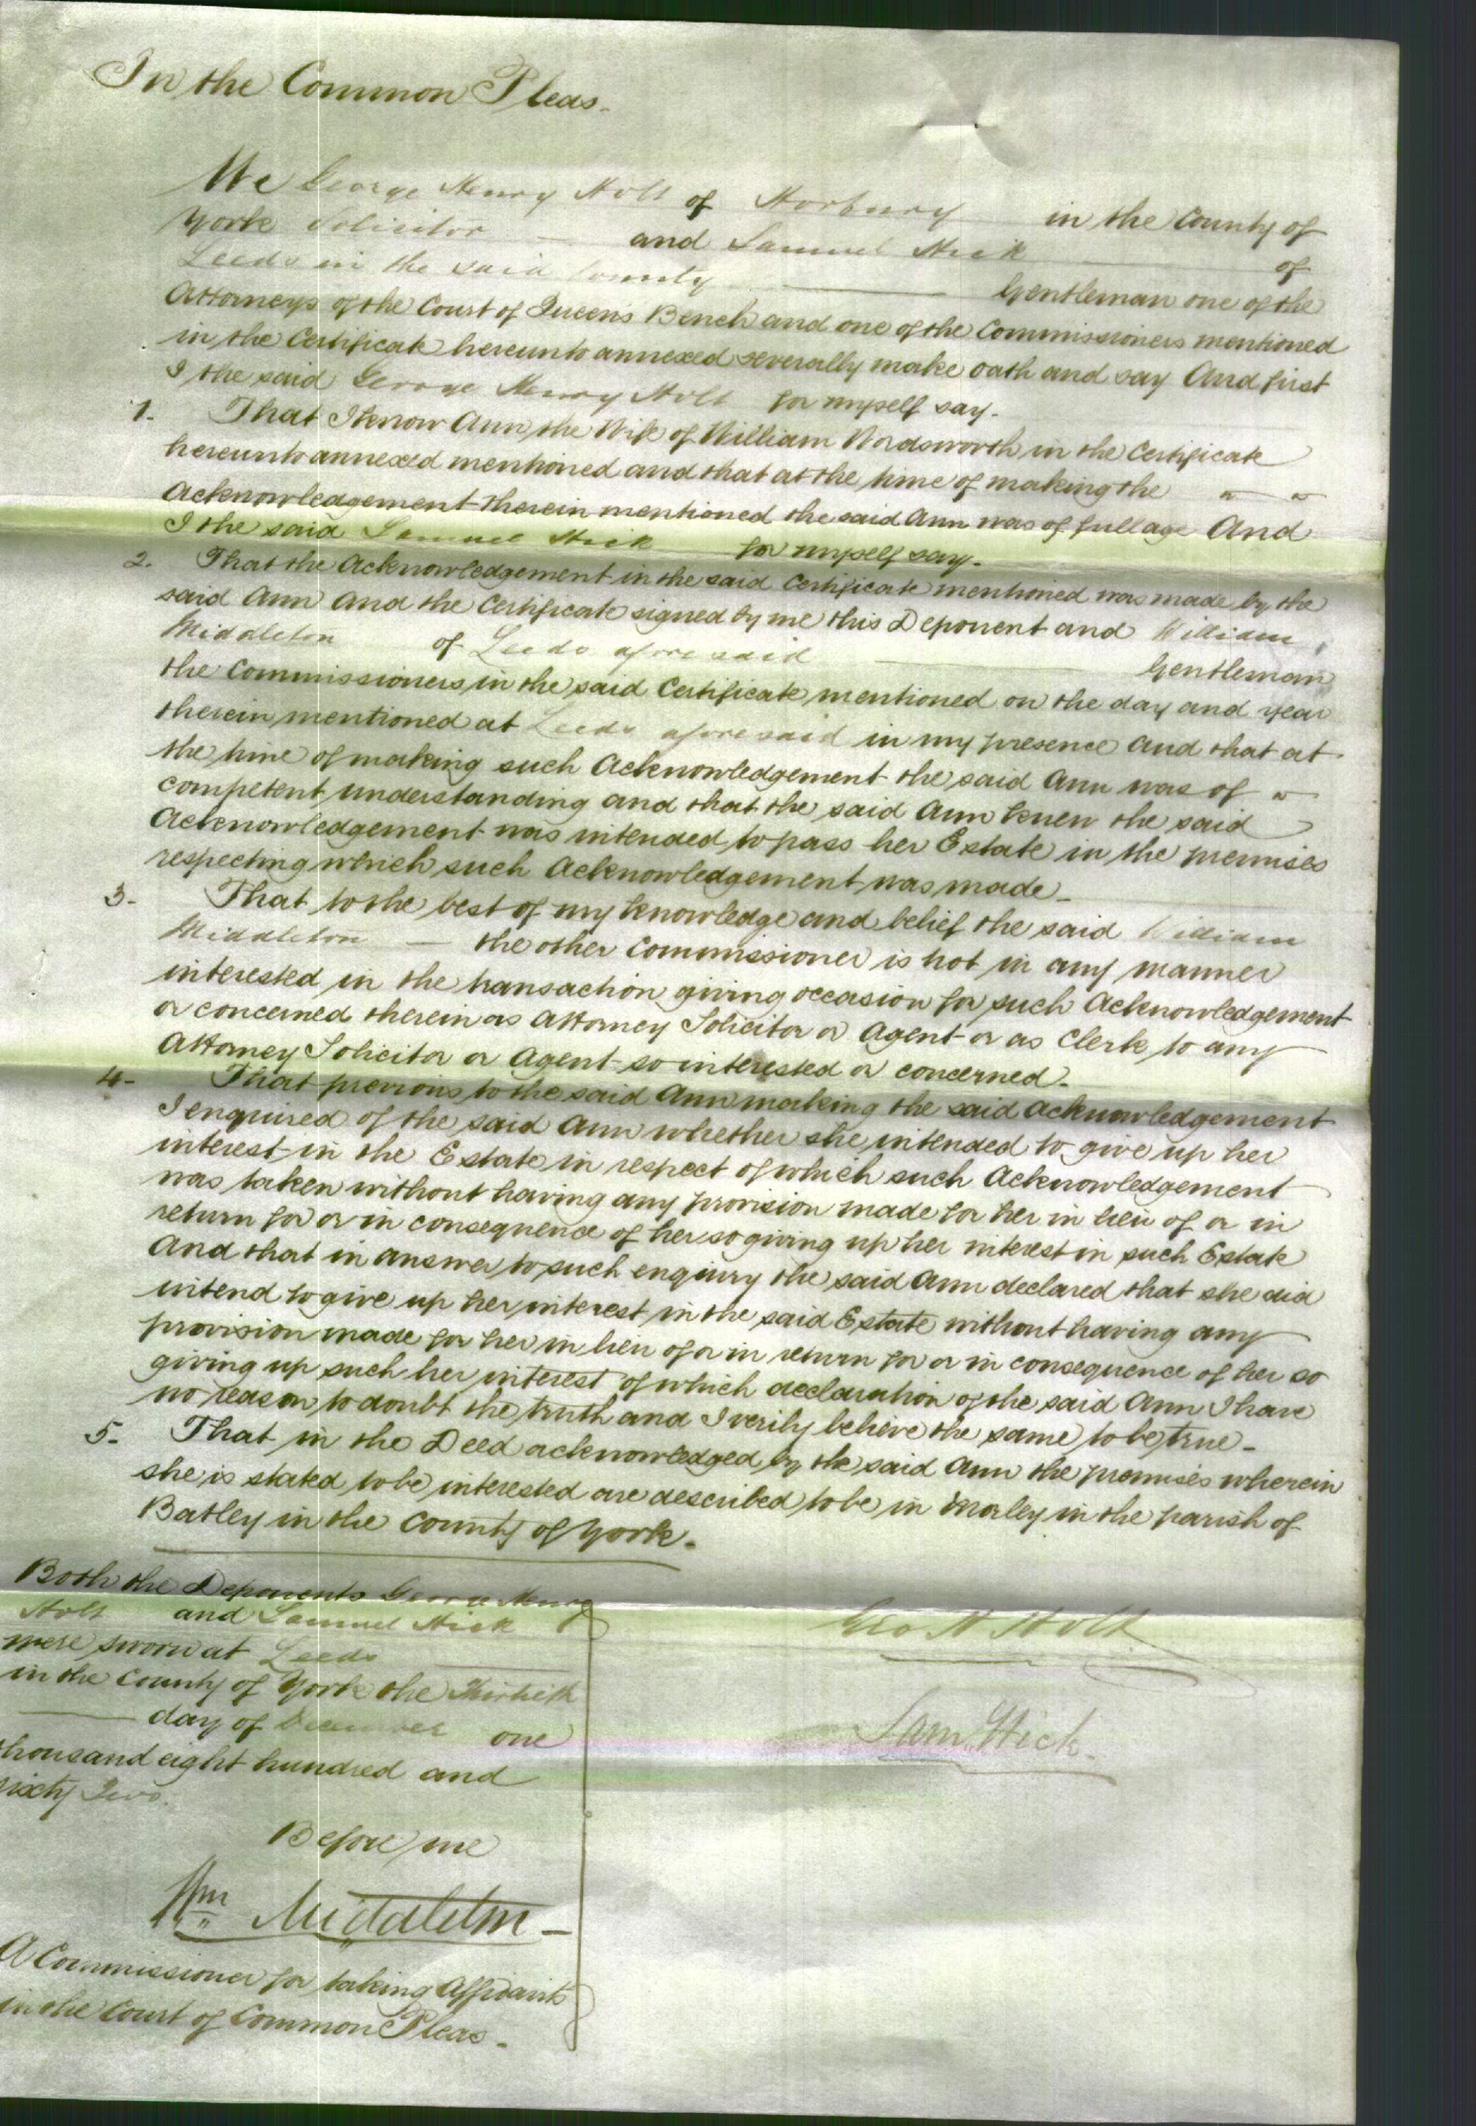 In the Common Pleas.
We George Henry Holt of Horbury in the County of
York Solicitor and Samuel Hick of
Leeds in the said County Gentleman one of the
Attorneys of the Court of Queens Bench and one of the Commissioners mentioned
in the Certificate hereunto annexed severally make oath and say And first
I the said George Henry Holt for myself say.
1. That I know Ann the Wife of William Wordsworth in the Certificate
hereunto annexed mentioned and that at the time of making the
Acknowledgement therein mentioned the said Ann was of full age And
I the said Samuel Hick for myself say.
2. That the Acknowledgement in the said Certificate mentioned was made by the
said Ann And the Certificate signed by me this Deponent and William
Middleton of Leeds aforesaid Gentleman
the Commissioners in the said Certificate mentioned on the day and year
therein mentioned at Leeds aforesaid in my presence And that at
the time of making such Acknowledgement the said Ann was of
competent understanding and that the said Ann knew the said
Acknowledgement was intended to pass her Estate in the premises
respecting which such Acknowledgement was made.
3. That to the best of my knowledge and belief the said William
Middleton the other Commissioner is not in any manner
interested in the transaction giving occasion for such Acknowledgement
or concerned therein as Attorney Solicitor or Agent or as Clerk to any
Attorney Solicitor or Agent so interested or concerned.
4. That previous to the said Ann making the said Acknowledgement
I enquired of the said Ann whether she intended to give up her
interest in the Estate in respect of which such Acknowledgement
was taken without having any provision made for her in lieu of or in
return for or in consequence of her so giving up her interest in such Estate
And that in answer to such enquiry the said Ann declared that she did
intend to give up her interest in the said Estate without having any
provision made for her in lieu of or in return for or in consequence of her so
giving up such her interest of which declaration of the said Ann I have
no reason to doubt the truth and I verily believe the same to be true.
5. That in the Deed acknowledged by the said Ann the premises wherein
she is stated to be interested are described to be in Morley in the parish of
Batley in the County of York.
Both the Deponents George Henry
Holt and Samuel Hick
were sworn at Leeds
in the County of York the Thirtieth
day of December one
thousand eight hundred and
sixty Two.
Before me
Wm Middleton
A Commissioner for taking Affidavits
in the Court of Common Pleas.
Geo H Holt
Saml Hick.